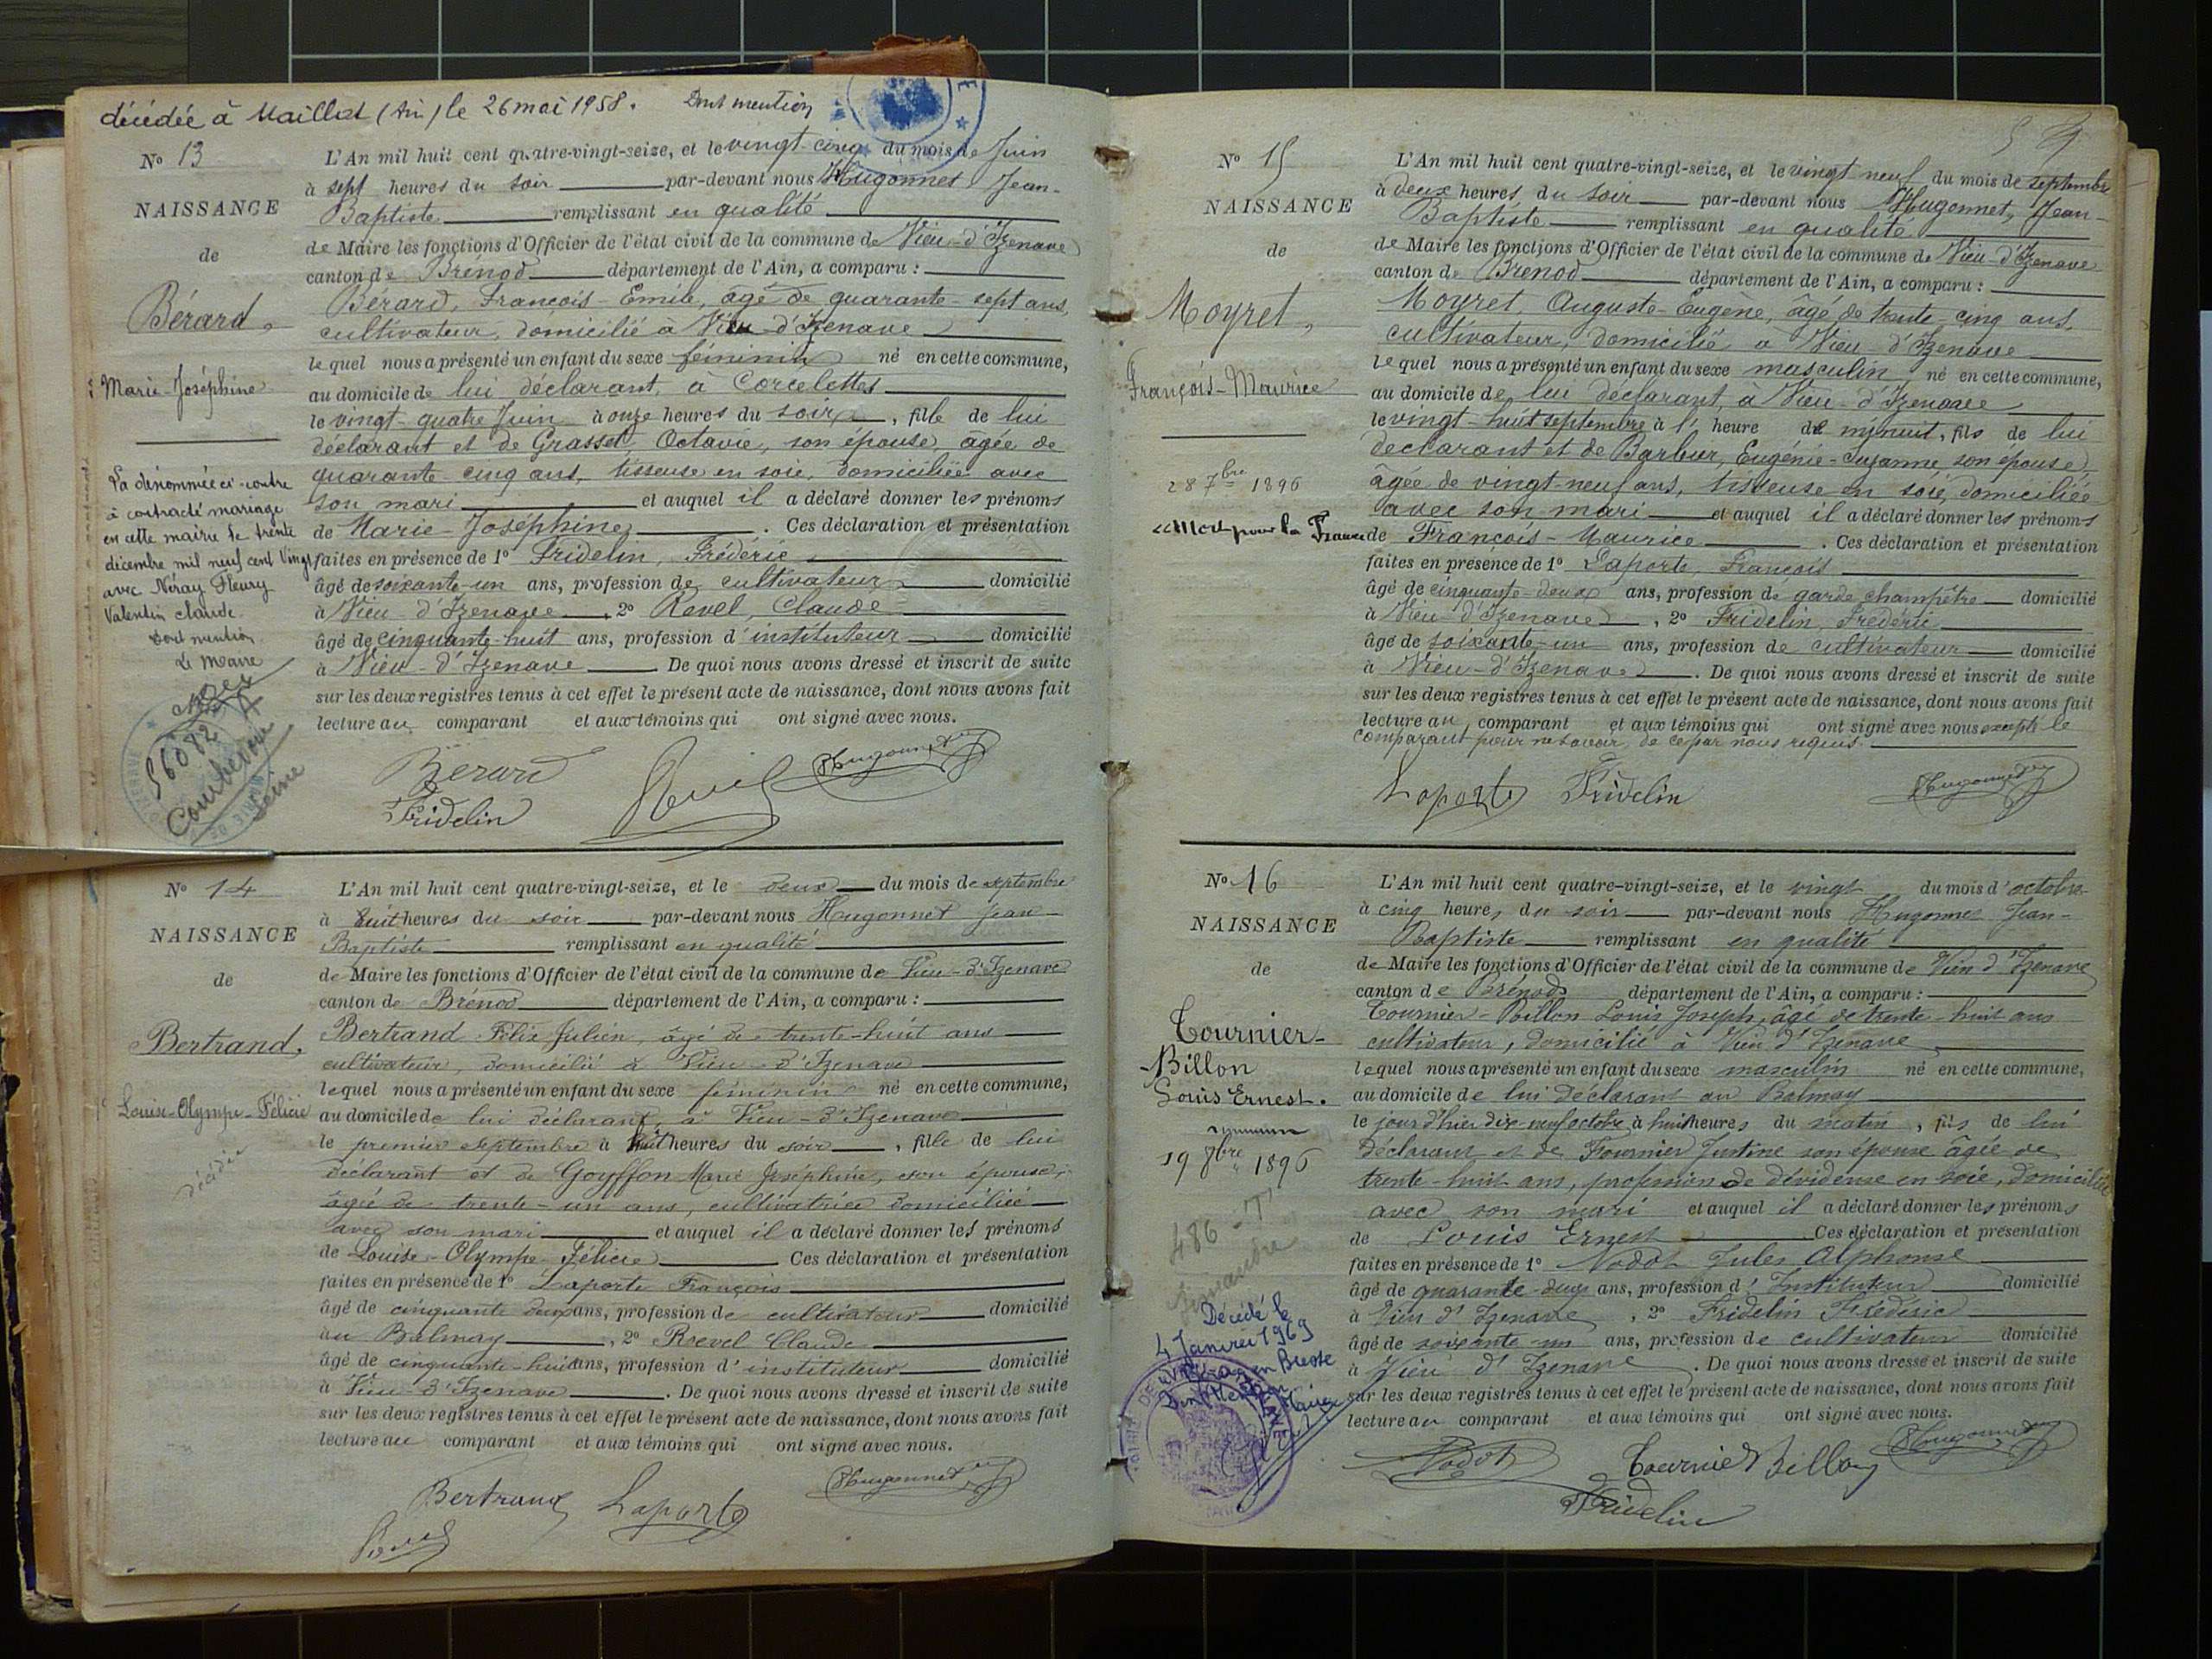 décédée à Maillat (Ain) le 26 mai 1958. Dont mention
N° 13
NAISSANCE
de
Bérard,
Marie-Joséphine
La dénommée ci-contre
à contracté mariage
en cette mairie le trente
décembre mil neuf cent vingt
avec Néray Fleury
Valentin Claude.
Dont mention
Le Maire
56082
Courbevoie
Seine
L'An mil huit cent quatre-vingt-seize, et le vingt-cinq du mois de Juin
à sept heures du soir par-devant nous Hugonnet, Jean-
Baptiste remplissant en qualité
de Maire les fonctions d'Officier de l'état civil de la commune de Vieu-d'Izenave
canton de Brénod département de l'Ain, a comparu :
Bérard, François-Emile, âgé de quarante-sept ans,
cultivateur, domicilié à Vieu-d'Izenave
lequel nous a présenté un enfant du sexe féminin né en cette commune,
au domicile de lui déclarant, à Corcelettes
le vingt-quatre Juin à onze heures du soir, fille de lui
déclarant et de Grasset, Octavie, son épouse, agée de
quarante-cinq ans, tisseuse en soie, domiciliée avec
son mari et auquel il a déclaré donner les prénoms
de Marie-Joséphine. Ces déclaration et présentation
faites en présence de 1° Fridelin, Frédéric
âgé de soixante-un ans, profession de cultivateur domicilié
à Vieu-d'Izenave, 2° Revel, Claude
âgé de cinquante-huit ans, profession d'instituteur domicilié
à Vieu-d'Izenave. De quoi nous avons dressé et inscrit de suite
sur les deux registres tenus à cet effet le présent acte de naissance, dont nous avons fait
lecture au comparant et aux témoins qui ont signé avec nous.
Bérard Revel Hugonnet
Fridelin
N° 14
NAISSANCE
de
Bertrand,
Louise-Olympe-Félicie
décédée
L'An mil huit cent quatre-vingt-seize, et le deux du mois de septembre
à huit heures du soir par-devant nous Hugonnet Jean
Baptiste remplissant en qualité
de Maire les fonctions d'Officier de l'état civil de la commune de Vieu-d'Izenave
canton de Brénod département de l'Ain, a comparu :
Bertrand Félix Julien, âgé de trente-huit ans
cultivateur, domicilié à Vieu-d'Izenave
lequel nous a présenté un enfant du sexe féminin né en cette commune,
au domicile de lui déclarant, à Vieu-d'Izenave
le premier septembre à huit heures du soir, fille de lui
déclarant et de Goyffon Marie Joséphine, son épouse,
âgée de trente-un ans, cultivatrice domiciliée
avec son mari et auquel il a déclaré donner les prénoms
de Louise-Olympe-Félicie Ces déclaration et présentation
faites en présence de 1° Laporte François
âgé de cinquante deux ans, profession de cultivateur domicilié
au Balmay, 2° Revel Claude
âgé de cinquante-huit ans, profession d'instituteur domicilié
à Vieu-d'Izenave. De quoi nous avons dressé et inscrit de suite
sur les deux registres tenus à cet effet le présent acte de naissance, dont nous avons fait
lecture au comparant et aux témoins qui ont signé avec nous.
Bertrand Laporte Hugonnet
Revel
N° 15
NAISSANCE
de
Moyret,
François-Maurice
28 7bre 1896
"Mort pour la France
L'An mil huit cent quatre-vingt-seize, et le vingt neuf du mois de septembre
à deux heures du soir par-devant nous Hugonnet, Jean-
Baptiste remplissant en qualité
de Maire les fonctions d'Officier de l'état civil de la commune de Vieu-d'Izenave
canton de Brénod département de l'Ain, a comparu :
Moyret, Auguste-Eugène, âgé de trente-cinq ans,
cultivateur, domicilié à Vieu-d'Izenave
lequel nous a présenté un enfant du sexe masculin né en cette commune,
au domicile de lui déclarant, à Vieu-d'Izenave
le vingt-huit septembre à l'heure de minuit, fils de lui
déclarant et de Barbur, Eugénie-Suzanne, son épouse,
âgée de vingt-neuf ans, tisseuse en soie, domiciliée
avec son mari et auquel il a déclaré donner les prénoms
de François-Maurice. Ces déclaration et présentation
faites en présence de 1° Laporte, François
âgé de cinquante-deux ans, profession de garde champêtre domicilié
à Vieu-d'Izenave, 2° Fridelin, Frédéric
âgé de soixante-un ans, profession de cultivateur domicilié
à Vieu-d'Izenave. De quoi nous avons dressé et inscrit de suite
sur les deux registres tenus à cet effet le présent acte de naissance, dont nous avons fait
lecture au comparant et aux témoins qui ont signé avec nous excepté le
comparant pour ne savoir, de ce par nous requis.
Laporte Fridelin Hugonnet
N° 16
NAISSANCE
de
Tournier-
Billon
Louis Ernest.
19 8bre 1896
486-T
Décédé le
4 Janvier 1969
L'An mil huit cent quatre-vingt-seize, et le vingt du mois d'octobre
à cinq heures du soir par-devant nous Hugonnet Jean-
Baptiste remplissant en qualité
de Maire les fonctions d'Officier de l'état civil de la commune de Vieu d'Izenave
canton de Brénod département de l'Ain, a comparu :
Tournier-Billon Louis Joseph, âgé de trente-huit ans
cultivateur, domicilié à Vieu d'Izenave
lequel nous a présenté un enfant du sexe masculin né en cette commune,
au domicile de lui déclarant au Balmay
le jour d'hier dix-neuf octobre à huit heures du matin, fils de lui
déclarant et de Fournier Justine son épouse âgée de
trente-huit ans, profession de dévideuse en soie, domiciliée
avec son mari et auquel il a déclaré donner les prénoms
de Louis Ernest Ces déclaration et présentation
faites en présence de 1° Nodot Jules Alphonse
âgé de quarante-deux ans, profession d'Instituteur domicilié
à Vieu d'Izenave, 2° Fridelin Frédéric
âgé de soixante-un ans, profession de cultivateur domicilié
à Vieu d'Izenave. De quoi nous avons dressé et inscrit de suite
sur les deux registres tenus à cet effet le présent acte de naissance, dont nous avons fait
lecture au comparant et aux témoins qui ont signé avec nous.
Nodot Tournier Billon Hugonnet
Fridelin